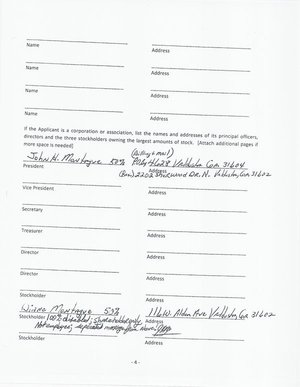 Name Address
Name Address
Name Address
Name Address
If the Applicant is a corporation or association, list the names and addresses of its principal officers,
directors and the three stockholders owning the largest amounts of stock. [Attach additional pages if
more space is needed]
(Billing & mail)
John H. Mantogue 50% Valdosta Ga. 31604
President Address
(Bus) 2202 Dr. N. Valdosta, Ga 31602
Vice President Address
Secretary Address
Treasurer Address
Director Address
Director Address
Stockholder Address
Mantogue 50% 1116 W. Alden Ave Valdosta Ga 31602
Stockholder 100% disabled; stockholder only Address
Not employee;
Stockholder Address
- 4 -